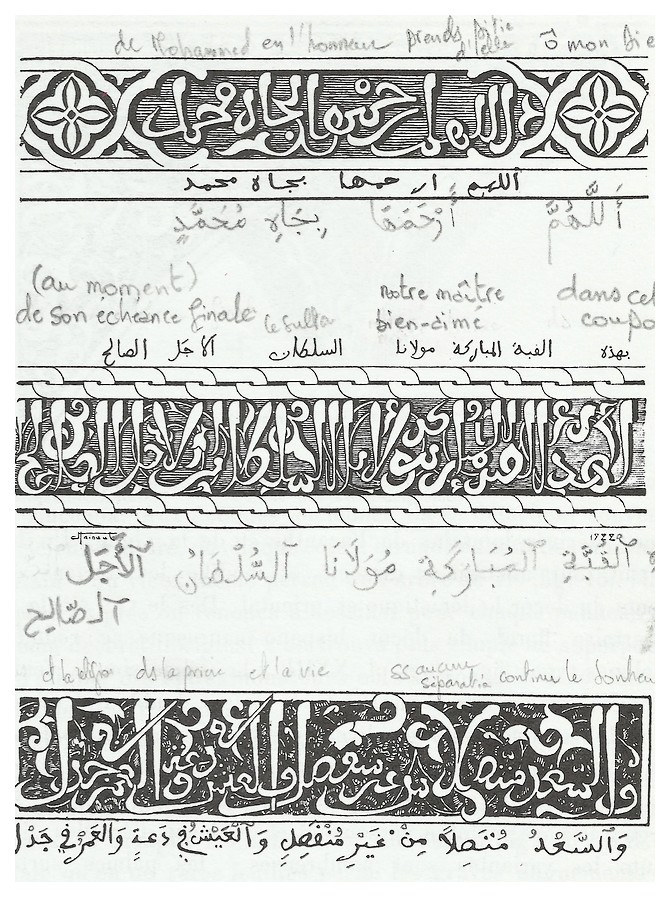 de Mohammed en l'honneur prends pitié d'elle ô mon Die
اللهم ارحمها بجاه محمد
اللهم ارحمها بجاه محمد
أَللَّهُمَّ أَرْحَمَهَا بِجَاهِ مُحَمَّدٍ
(au moment)
de son échéance finale le sultan notre maître bien-aimé dans cet coupo
بهذه القبة المباركة مولانا السلطان الأجل الصالح
بهذه القبة المباركة مولانا السلطان الأجل الصالح
القُبَّةِ المُبَارَكَةِ مَوْلَانَا السُّلْطَانُ الأَجَل
الصَّالِح
et la religion ds la prière et la vie ss aucune séparation continue le bonheu
والسعد متصلا من غير منفصل والعيش في دعة والعمر في جذل
وَالسَّعْدُ مُتَّصِلاً مِنْ غَيْرِ مُنْفَصِلِ وَالعَيْشُ فِي دَعَةٍ وَالعُمْرُ فِي جَذَلِ